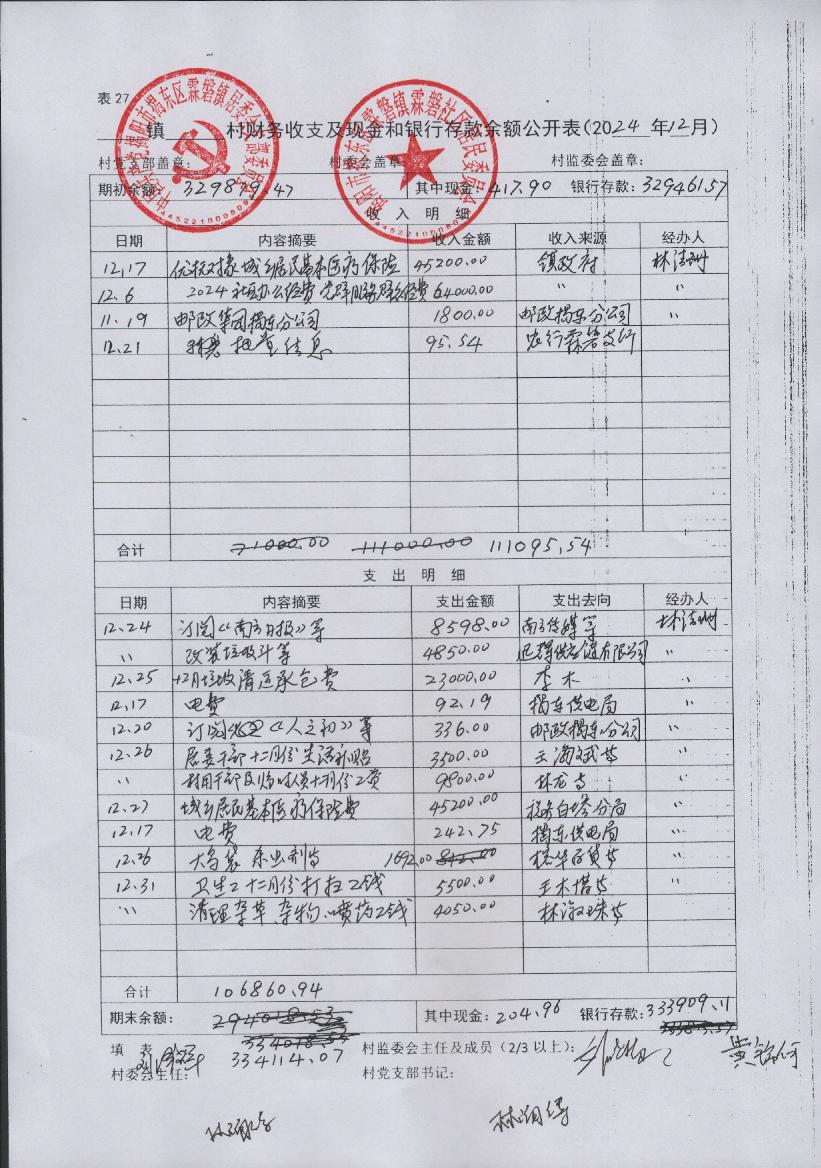 表 27
镇 村财务收支及现金和银行存款余额公开表(2024 年12月)
村党支部盖章: 村委会盖章: 村监委会盖章:
期初余额: 329879.47 其中现金: 417.90 银行存款: 329461.57
收 入 明 细
日期 内容摘要 收入金额 收入来源 经办人
12.17 优抚对象城乡居民基本医疗保险 45200.00 镇政府 林
12.6 2024社区办公经费 党群服务 经费 64000.00 〃 〃
11.19 邮政集团揭东分公司 1800.00 邮政揭东分公司 〃
12.21 信息 95.54 农行霖磐支行
合计 71000.00 111000.00 111095.54
支 出 明 细
日期 内容摘要 支出金额 支出去向 经办人
12.24 订阅《南方日报》等 8598.00 南方传媒等 林
〃 改装垃圾斗等 4850.00 供应链有限公司 〃
12.25 12月垃圾清运承包费 23000.00 李木 〃
12.17 电费 92.19 揭东供电局 〃
12.20 订阅 《人之初》等 336.00 邮政揭东分公司 〃
12.26 居委干部十二月份生活补贴 3500.00 王 等 〃
〃 村用干部及临时人员十二月份工资 9800.00 林龙等 〃
12.27 城乡居民基本医疗保险费 45200.00 税务白塔分局 〃
12.17 电费 242.75 揭东供电局 〃
12.26 大 袋 等 1692.00 百货等 〃
12.31 卫生工十二月份打扫工钱 5500.00 王木 等 〃
〃 清理杂草、杂物、喷药工钱 4050.00 林 珠等
合计 106860.94
期末余额: 294018.53 其中现金: 204.96 银行存款: 333909.11
334018.53
填 表 334114.07 村监委会主任及成员 (2/3 以上):
村委会主任: 村党支部书记: